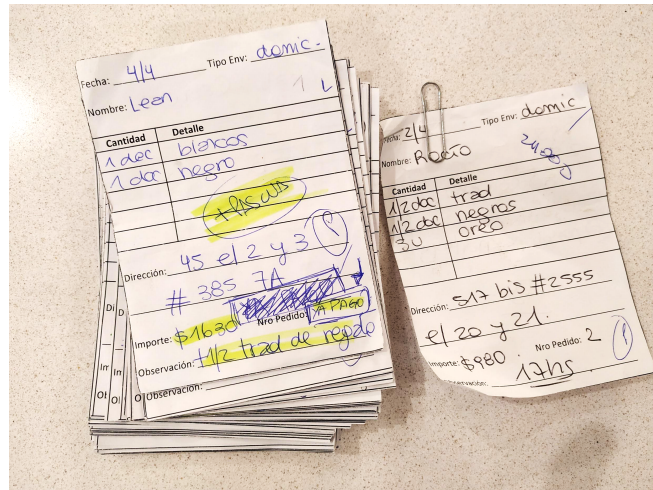 Fecha: 4/4 Tipo Env: domic.
Nombre: Lean
Cantidad Detalle
1 doc blancos
1 doc negro
Dirección: 45 e/ 2 y 3
# 385 7A
Importe: $1630 Nro Pedido: A PAGO
Observación: +1/2 trad de regalo
Observación:
Di
Im
Ob
Fecha: 2/4 Tipo Env: domic
Nombre: Rocío
Cantidad Detalle
1/2 doc trad
1/2 doc negros
3u oreo
Dirección: 517 bis #2555
e/ 20 y 21.
Importe: $980 Nro Pedido: 2
Observación: 17hs